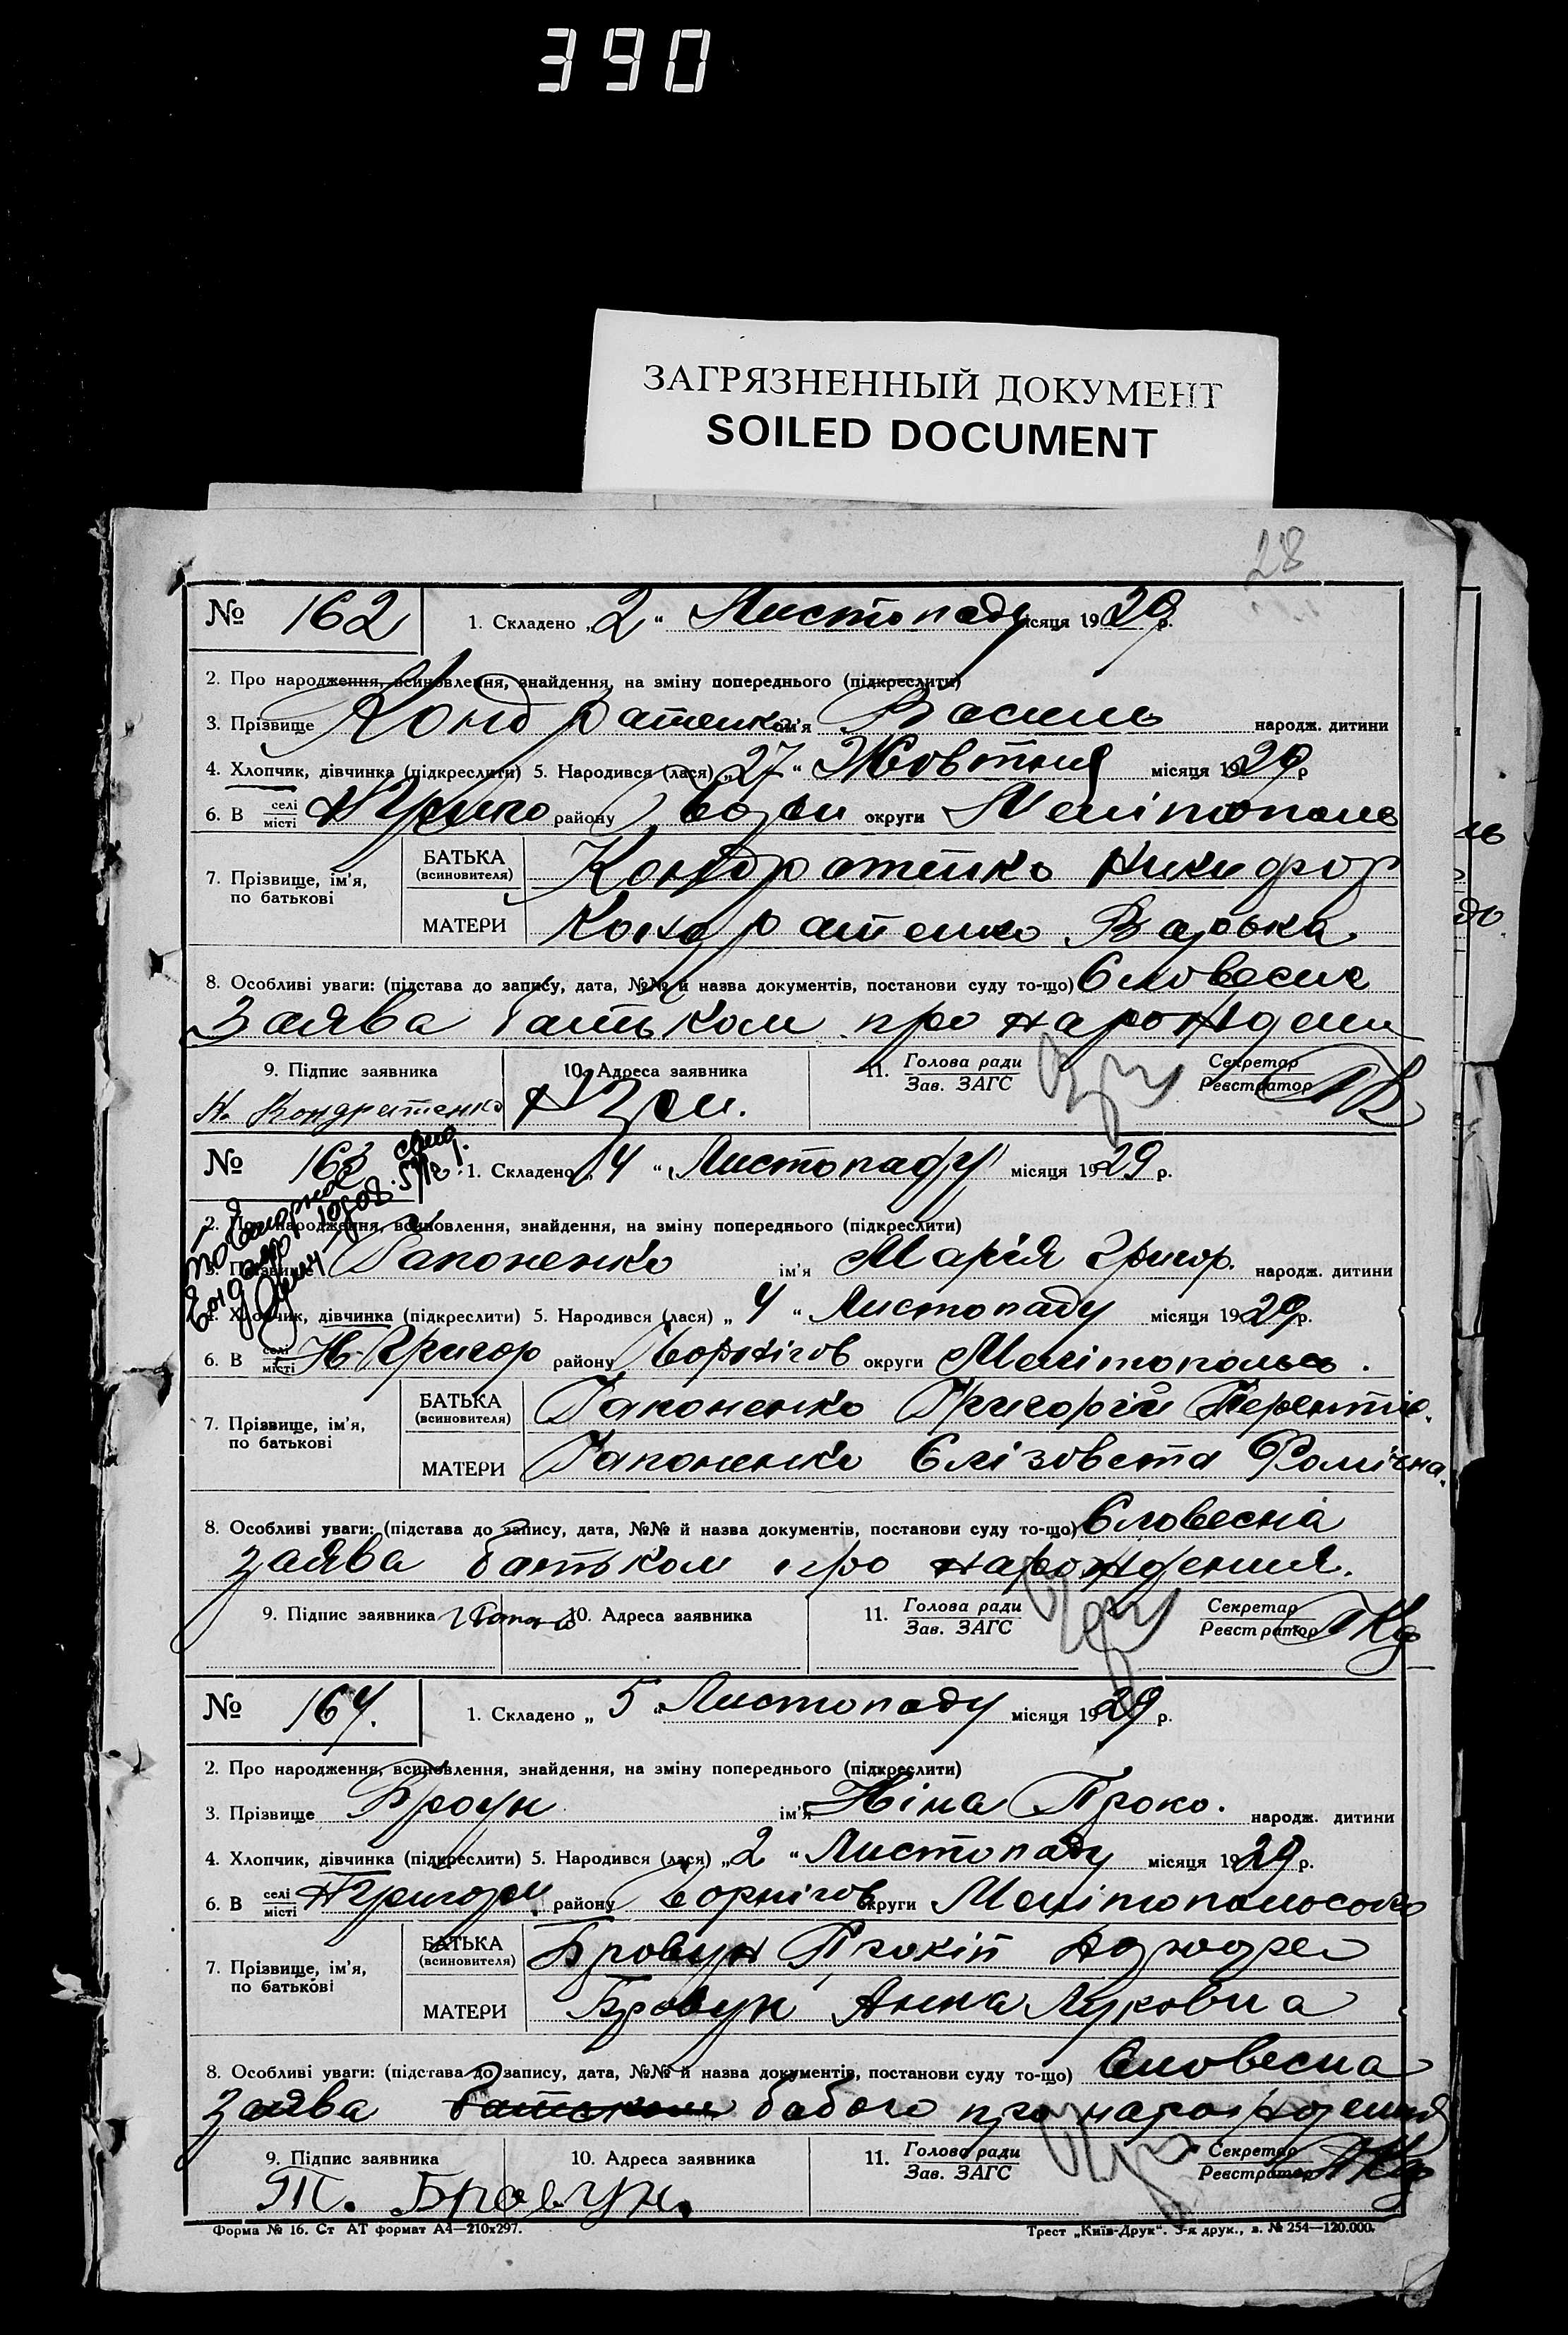 390
ЗАГРЯЗНЕННЫЙ ДОКУМЕНТ
SOILED DOCUMENT
28
№ 162 1. Складено „2“ Листопаду місяця 1929 р.
2. Про народження, всиновлення, знайдення, на зміну попереднього (підкреслити)
3. Прізвище Кондратенко ім’я Василь народж. дитини
4. Хлопчик, дівчинка (підкреслити) 5. Народився (лася) „27“ Жовтня місяця 1929 р
6. В селі місті району округи Мелітополь
7. Прізвище, ім’я, по батькові БАТЬКА (всиновителя) Кондратенко Никифор
МАТЕРИ Кондратенко Варька
8. Особливі уваги: (підстава до запису, дата, №№ й назва документів, постанови суду то-що) Словесне
Заява батьком про нарождени
9. Підпис заявника 10. Адреса заявника 11. Голова ради Зав. ЗАГС Секретар Реєстратор
Н. Кондратенко
№ 163 1. Складено „4“ Листопаду місяця 1929 р.
2. Про народження, всиновлення, знайдення, на зміну попереднього (підкреслити)
3. Прізвище Гапоненко ім’я Марія Григор. народж. дитини
4. Хлопчик, дівчинка (підкреслити) 5. Народився (лася) „4“ Листопаду місяця 1929 р.
6. В селі місті Н-Григор району Чорнігов округи Мелітопольсь.
7. Прізвище, ім’я, по батькові БАТЬКА (всиновителя) Гапоненко Григорій Терентію.
МАТЕРИ Гапоненко Єлізовета Фомічна.
8. Особливі уваги: (підстава до запису, дата, №№ й назва документів, постанови суду то-що) Словесна
заява батьком про нарождения.
9. Підпис заявника 10. Адреса заявника 11. Голова ради Зав. ЗАГС Секретар Реєстратор
№ 164. 1. Складено „5“ Листопаду місяця 1929 р.
2. Про народження, всиновлення, знайдення, на зміну попереднього (підкреслити)
3. Прізвище Броун ім’я Ніна Проко. народж. дитини
4. Хлопчик, дівчинка (підкреслити) 5. Народився (лася) „2“ Листопаду місяця 1929 р.
6. В селі місті Н Григори району Чорнігов округи Мелітопольсько
7. Прізвище, ім’я, по батькові БАТЬКА (всиновителя) Бровун Прокіп
МАТЕРИ Бровун Анна Луковна
8. Особливі уваги: (підстава до запису, дата, №№ й назва документів, постанови суду то-що) Словесна
заява батьком бабою про нарождения
9. Підпис заявника 10. Адреса заявника 11. Голова ради Зав. ЗАГС Секретар Реєстратор
Т. Бровун.
Форма № 16. Ст АТ формат А4—210х297. Трест „Київ-Друк“. 3-я друк., з. № 254—120.000.